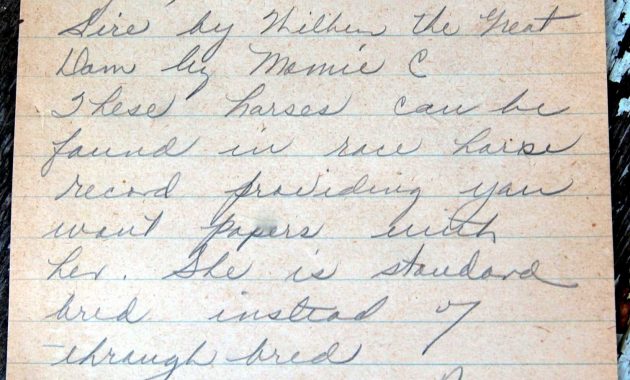 Sire by Wilhem the Great
Dam by Momie C
These horses can be
found in race horse
record providing you
want papers with
her. She is standard
bred instead of
through bred